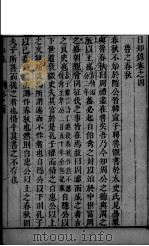 日知錄卷之四
魯之春秋
春秋不始於隱公晉韓宣子聘魯觀書於太史氏見易象
與魯春秋曰周禮盡在魯矣吾乃今知周公之德與周之所
以王也蓋必起自伯禽之封以洎於中世當周
之盛朝覲會同征伐之事皆在焉故曰周禮而成之者古
之良史也自隱公以
下世道衰微史失其官於是孔子懼而修之自惠公以上
之文無所改焉所謂述而不作者也自隱公以下則孔子以
己意修之所謂作春秋也然則自惠公以上之春秋固
夫子所善而從之者也惜乎其書之不存也